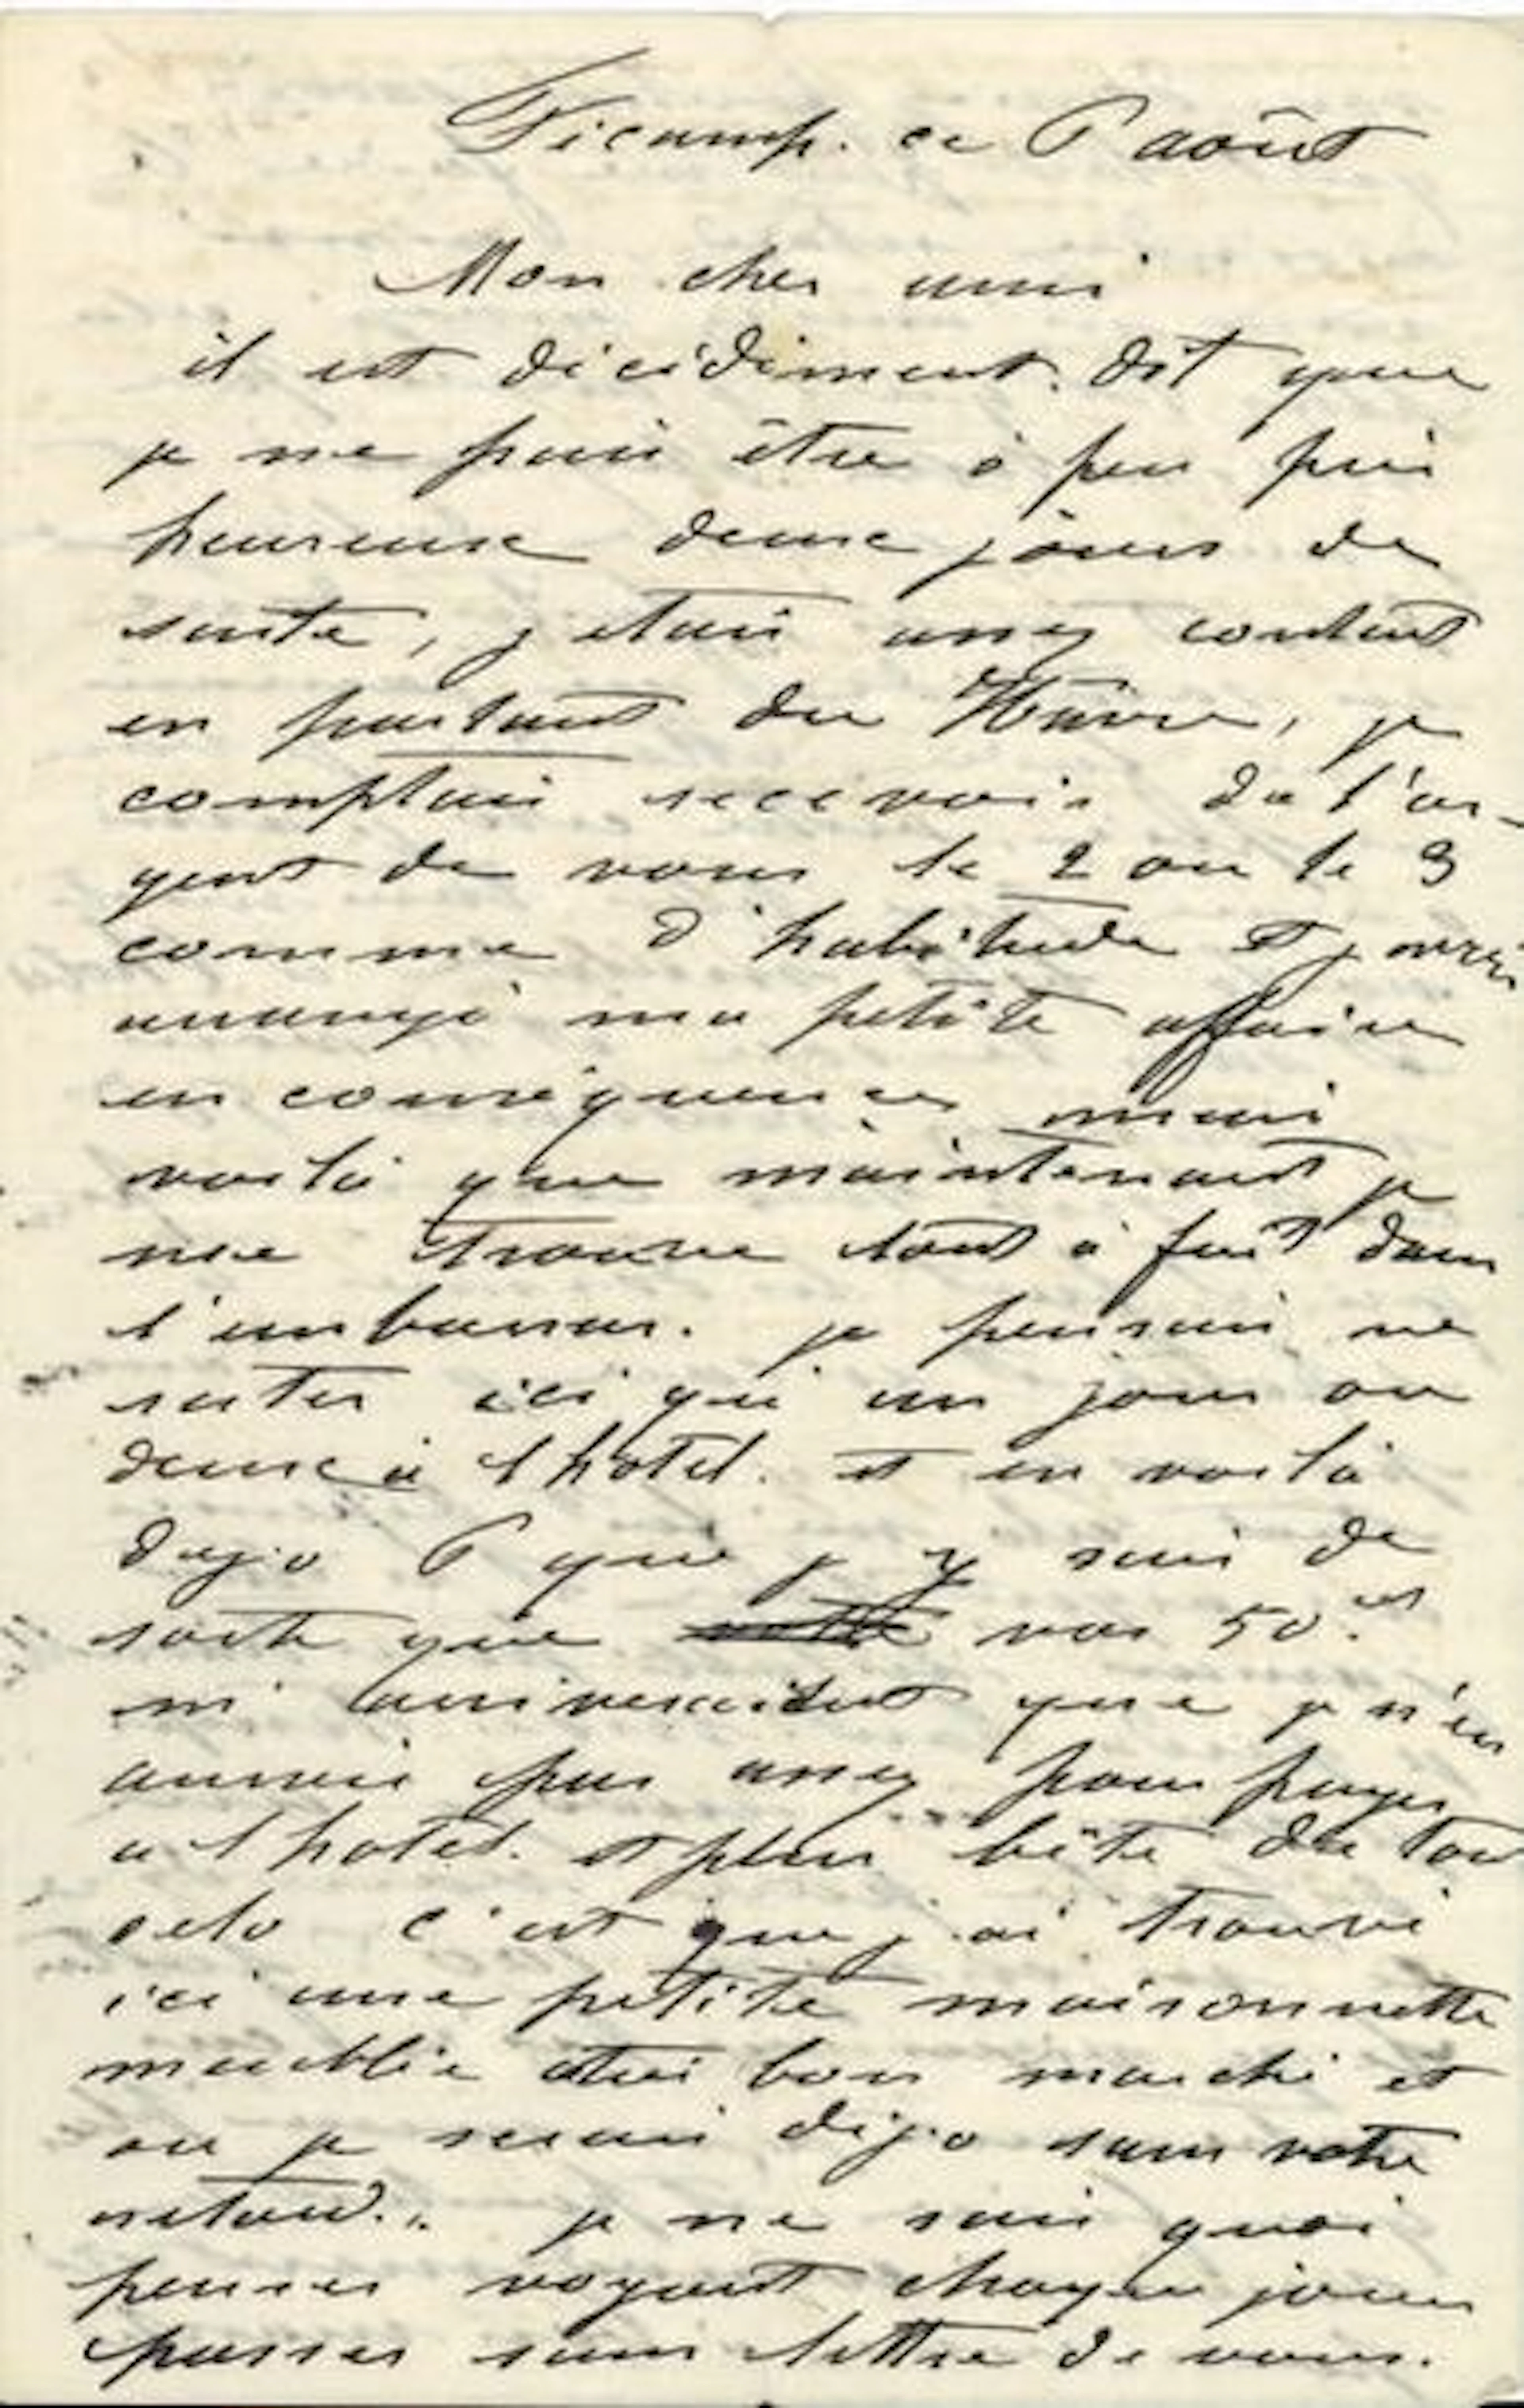 Fécamp. ce 6 août
Mon cher ami
il est décidément. dit que
je ne puis être à peu près
heureux deux jours de
suite, j etais assez content
en partant du Havre, je
comptais recevoir de l'ar-
gent de vous le 2 ou le 3
comme d'habitude et j avais
arrangé ma petite affaire
en conséquence mais
voilà que maintenant je
me trouve tout à fait dans
l'embarras. je pensais ne
rester ici qu'un jour ou
deux à l hotel. et en voilà
dejà 6 que j y suis de
sorte que vos 50
m' arriveraient que je n'en
aurais pas assez pour payer
a l hotel. et plus bête de tout
cela c'est que j ai trouvé
ici une petite maisonnette
meublée très bon marché et
ou je serais déjà sans votre
retard.. je ne sais quoi
penser voyant chaque jour
passer sans lettre de vous.